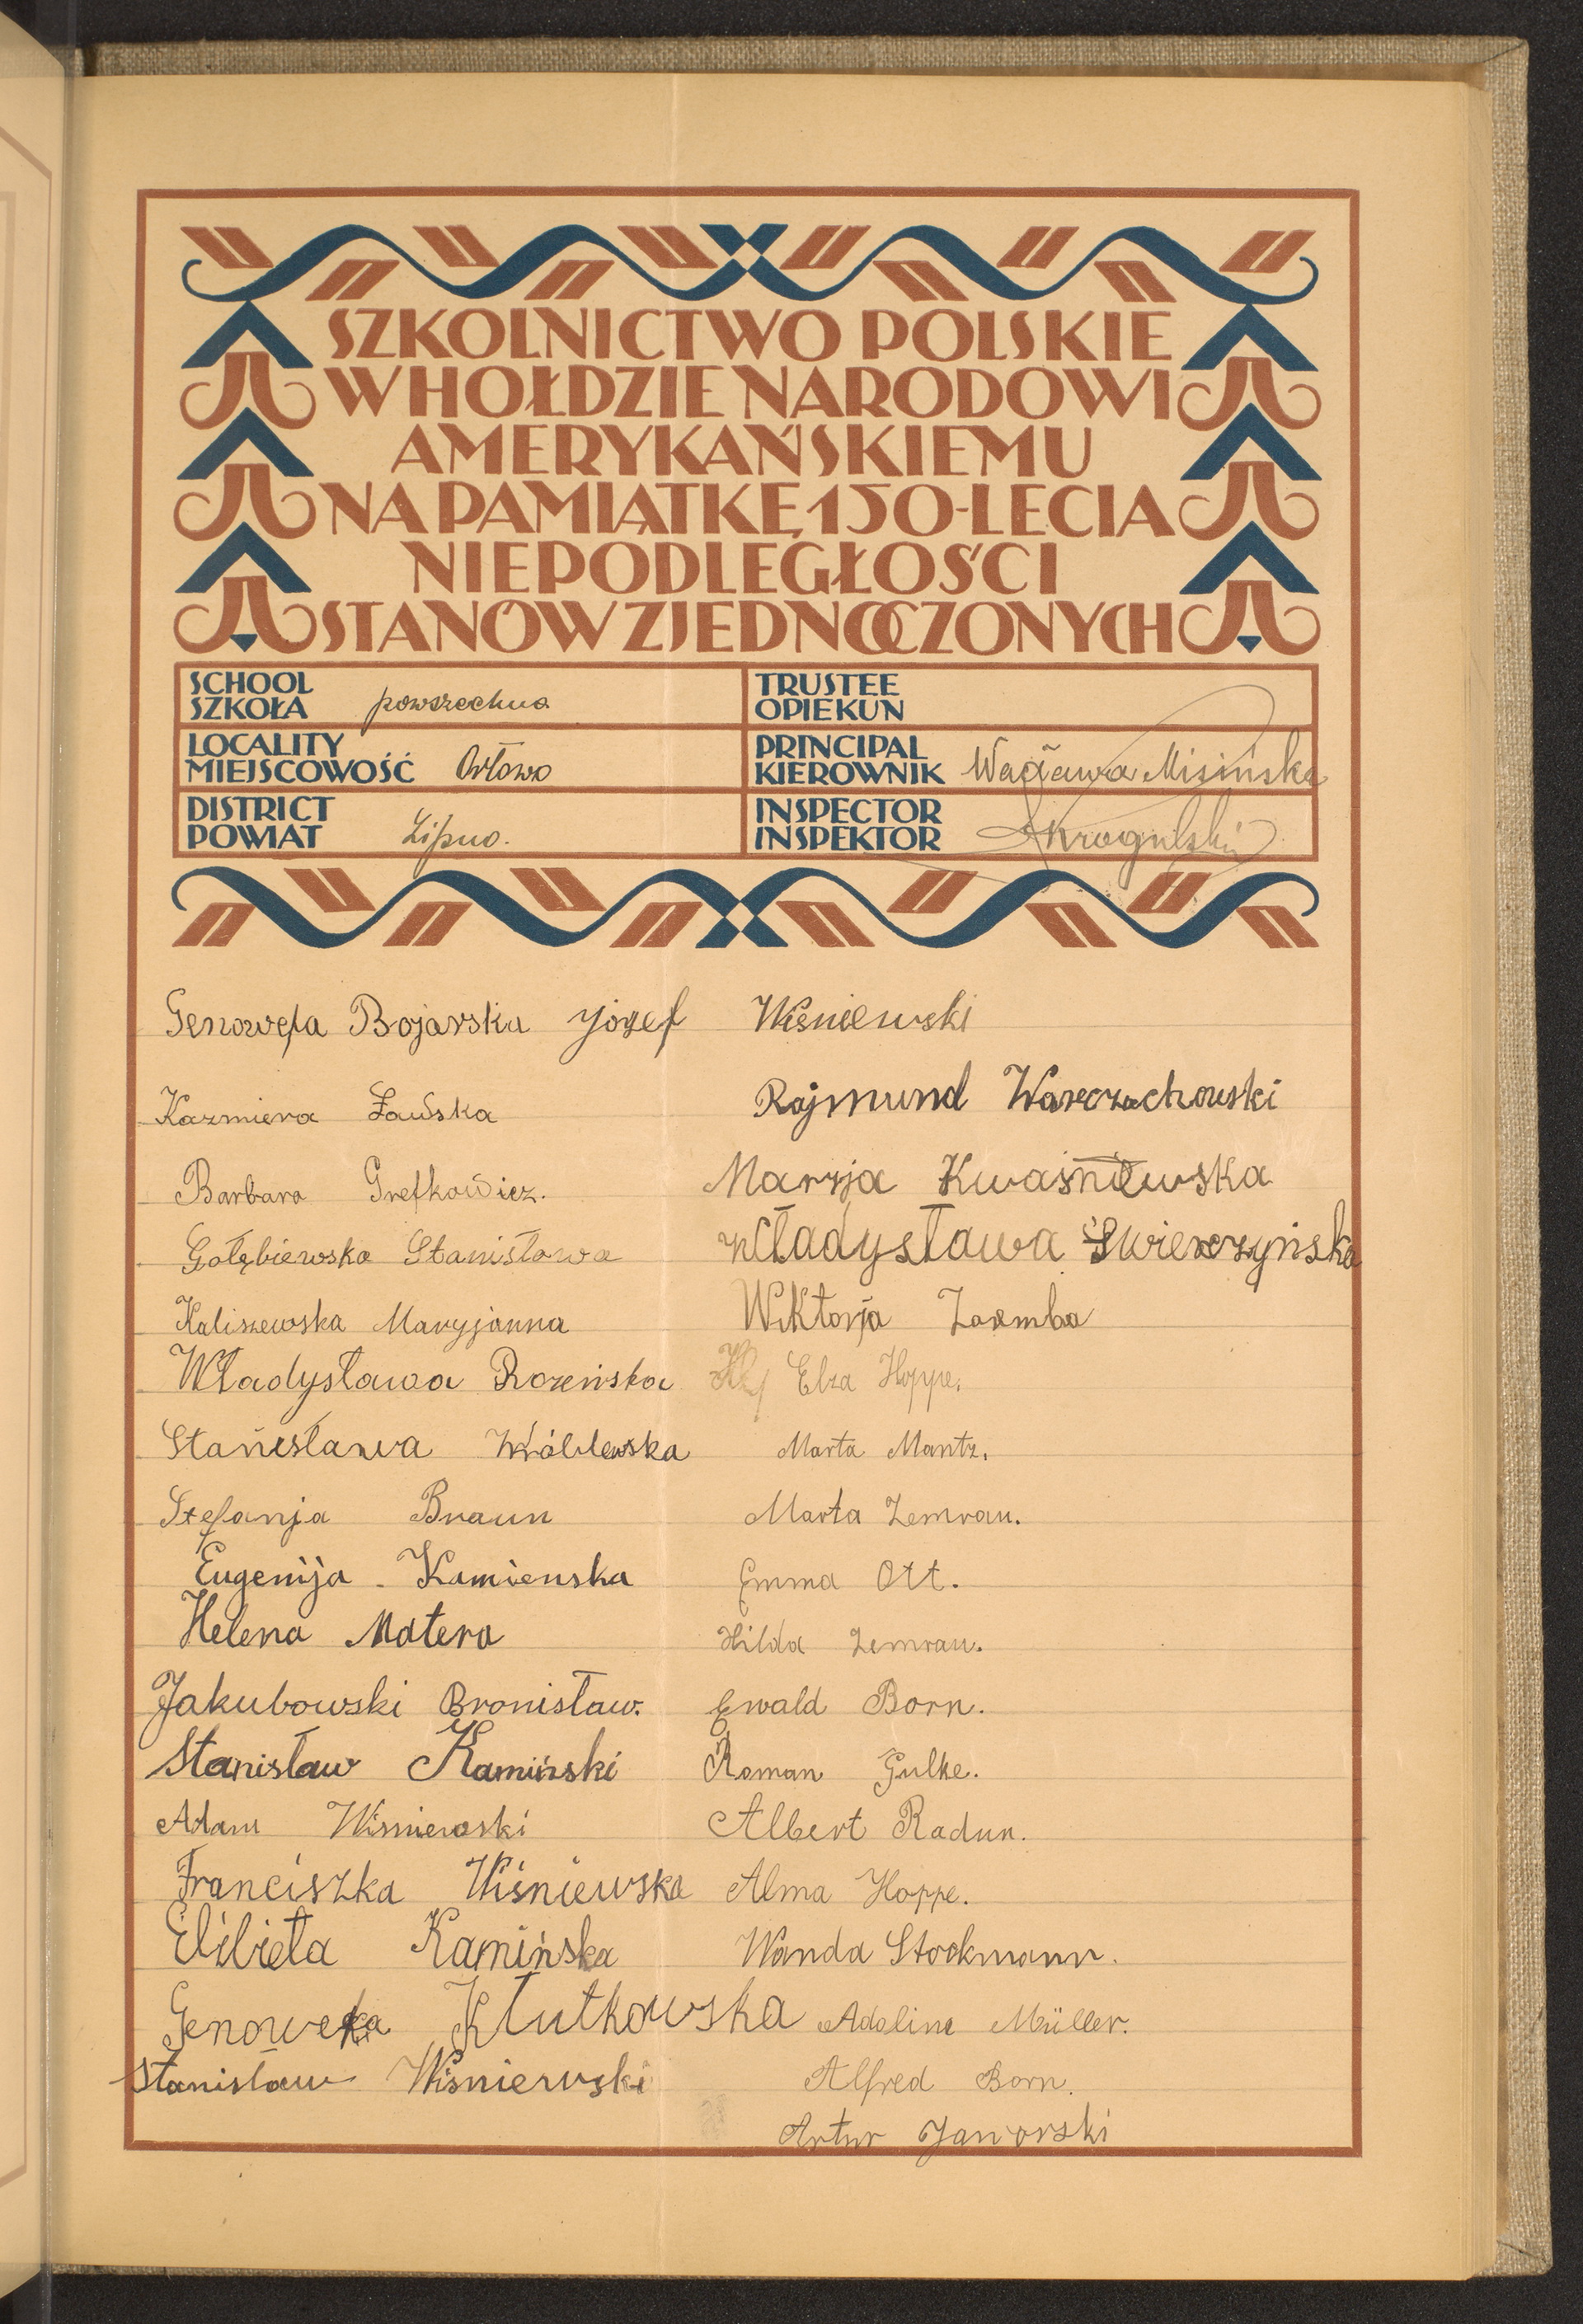 SZKOLNICTWO POLSKIE
W HOŁDZIE NARODOWI
AMERYKAŃSKIEMU
NA PAMIĄTKĘ 150-LECIA
NIEPODLEGŁOŚCI
STANÓW ZJEDNOCZONYCH
SCHOOL
SZKOŁA powszechna
TRUSTEE
OPIEKUN
LOCALITY
MIEJSCOWOŚĆ Orłowo
PRINCIPAL
KIEROWNIK Wacława Misińska
DISTRICT
POWIAT Lipno.
INSPECTOR
INSPEKTOR Krogulski
Genowefa Bojarska Józef Wiśniewski
Kazmiera
Rajmund Warczachowski
Barbara Grefkowicz.
Maryja Kwaśniewska
Gołębiewska Stanisława
Władysława Świerczyńska
Kaliszewska Maryjanna
Wiktorja Zaremba
Władysława Rozeńska
Elza Hoppe.
Stanisława Wróblewska
Marta Mantz.
Stefanja Braun
Marta Zemrau.
Eugenija Kamienska
Emma Ott.
Helena Matera
Hilda Zemrau.
Jakubowski Bronisław.
Ewald Born.
Stanisław Kamiński
Roman Gulke.
Adam Wisniewski
Albert Radun.
Franciszka Wiśniewska
Alma Hoppe.
Kamińska
Wanda Stockmann.
Genowefa Kłutkowska
Adoline Müller.
Stanisław Wiśniewski
Alfred Born.
Artur Jaworski